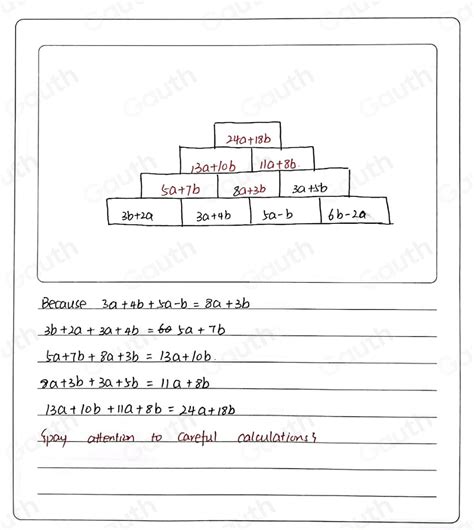 24a+18b
13a+10b 11a+8b
5a+7b 8a+3b 3a+5b
3b+2a 3a+4b 5a-b 6b-2a
Because 3a+4b+5a-b=8a+3b
3b+2a+3a+4b=5a+7b
5a+7b+8a+3b=13a+10b.
8a+3b+3a+5b=11a+8b
13a+10b+11a+8b=24a+18b
pay attention to careful calculations
Gauth